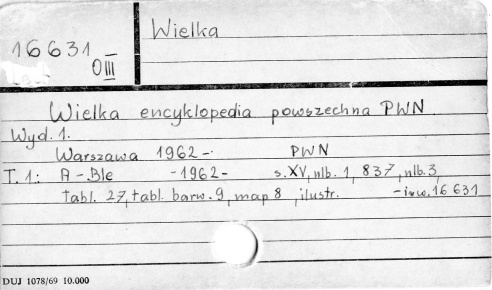 Wielka
16 631
O III
Wielka encyklopedia powszechna PWN
Wyd. 1.
Warszawa 1962 -. PWN
T. 1: A - Ble -1962- s. XV, nlb. 1, 837, nlb. 3,
tabl. 27, tabl. barw. 9, map 8, ilustr. - inw. 16 631
DUJ 1078/69 10.000